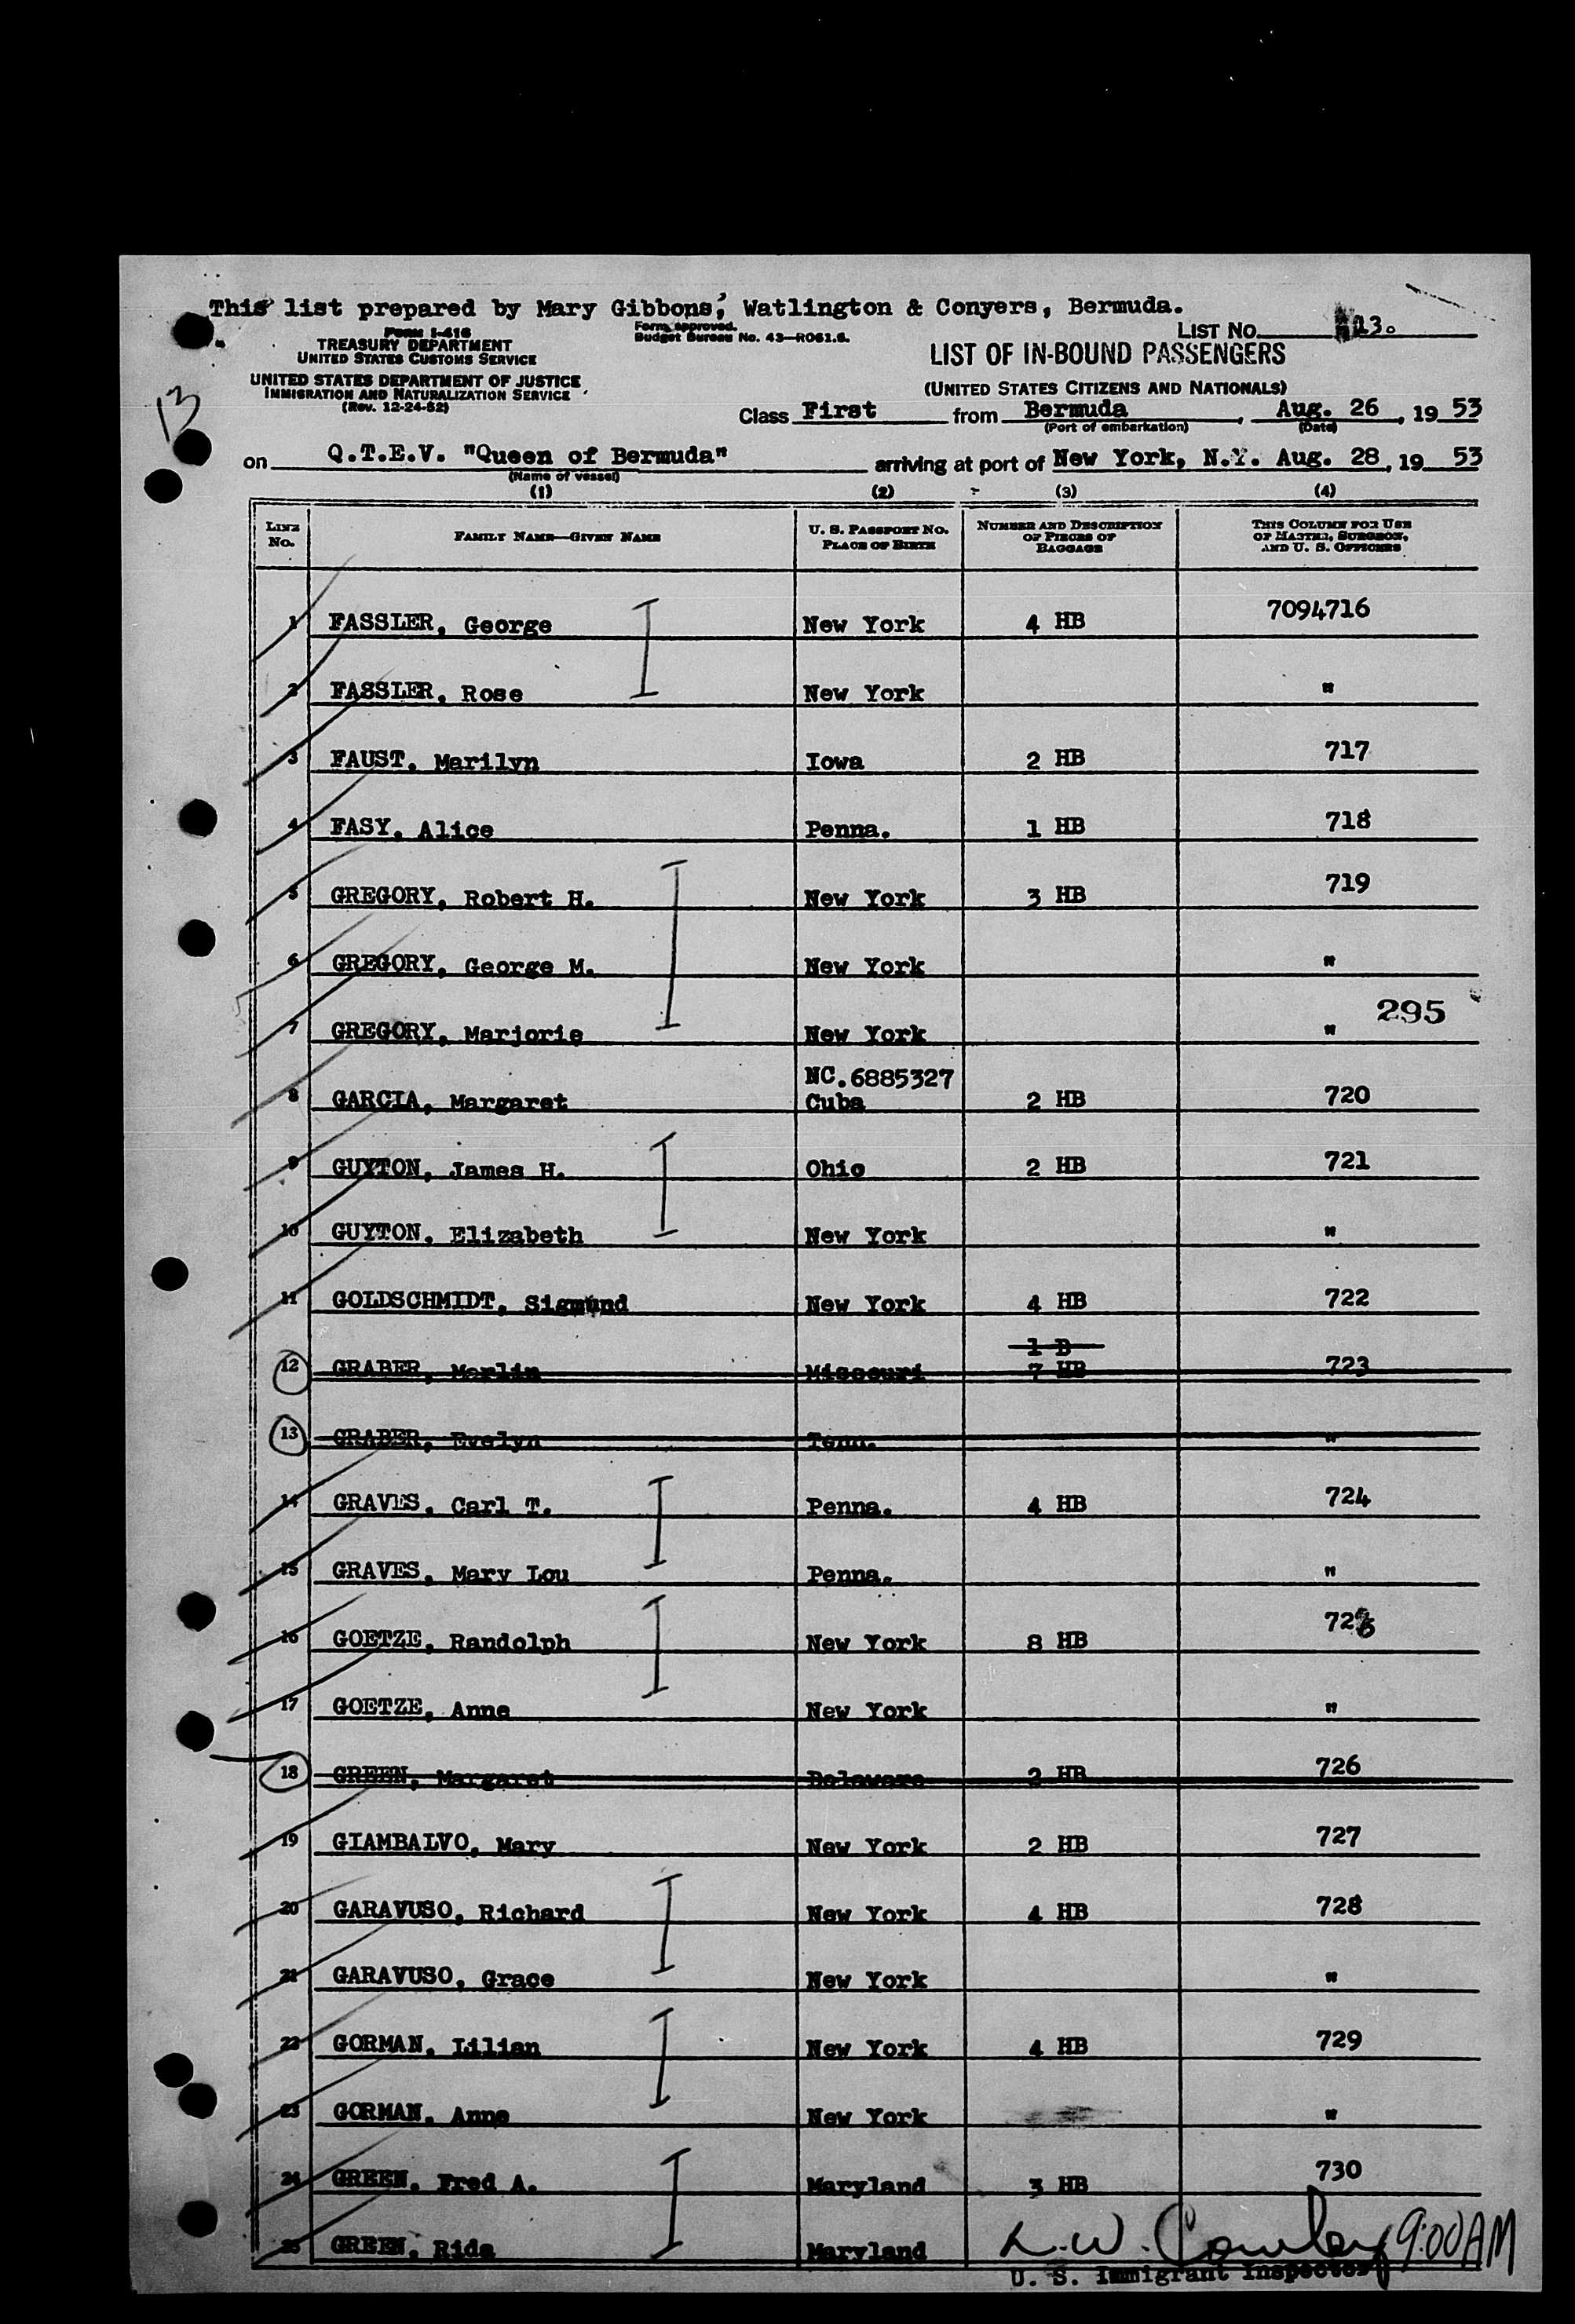 This list prepared by Mary Gibbons, Watlington & Conyers, Bermuda.
Form I-418
TREASURY DEPARTMENT
UNITED STATES CUSTOMS SERVICE
UNITED STATES DEPARTMENT OF JUSTICE
IMMIGRATION AND NATURALIZATION SERVICE
(Rev. 12-24-52)
Form approved.
Budget Bureau No. 43—R061.6.
LIST No. 13.
LIST OF IN-BOUND PASSENGERS
(UNITED STATES CITIZENS AND NATIONALS)
13
Class First from Bermuda, Aug. 26, 19 53
(Port of embarkation) (Date)
on Q.T.E.V. "Queen of Bermuda" arriving at port of New York, N.Y. Aug. 28, 19 53
(Name of vessel)
(1) (2) (3) (4)
LINE No. FAMILY NAME—GIVEN NAME U. S. PASSPORT NO. PLACE OF BIRTH NUMBER AND DESCRIPTION OF PIECES OF BAGGAGE THIS COLUMN FOR USE OF MASTER, SURGEON, AND U. S. OFFICERS
1 FASSLER, George New York 4 HB 7094716
2 FASSLER, Rose New York "
3 FAUST, Marilyn Iowa 2 HB 717
4 FASY, Alice Penna. 1 HB 718
5 GREGORY, Robert H. New York 3 HB 719
6 GREGORY, George M. New York "
7 GREGORY, Marjorie New York " 295
NC.6885327
8 GARCIA, Margaret Cuba 2 HB 720
9 GUYTON, James H. Ohio 2 HB 721
10 GUYTON, Elizabeth New York "
11 GOLDSCHMIDT, Sigmund New York 4 HB 722
1 B
12 GRABER, Merlin Missouri 7 HB 723
13 GRABER, Evelyn Tenn. "
14 GRAVES, Carl T. Penna. 4 HB 724
15 GRAVES, Mary Lou Penna. "
16 GOETZE, Randolph New York 8 HB
17 GOETZE, Anne New York "
18 GREEN, Margaret Delaware 2 HB 726
19 GIAMBALVO, Mary New York 2 HB 727
20 GARAVUSO, Richard New York 4 HB 728
21 GARAVUSO, Grace New York "
22 GORMAN, Lilian New York 4 HB 729
23 GORMAN, Anne New York "
24 GREEN, Fred A. Maryland 3 HB 730
25 GREEN, Rida Maryland
9:00 AM
U. S. Immigrant Inspector